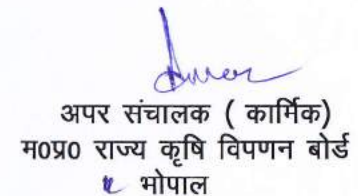 अपर संचालक ( कार्मिक)
म0प्र0 राज्य कृषि विपणन बोर्ड
भोपाल